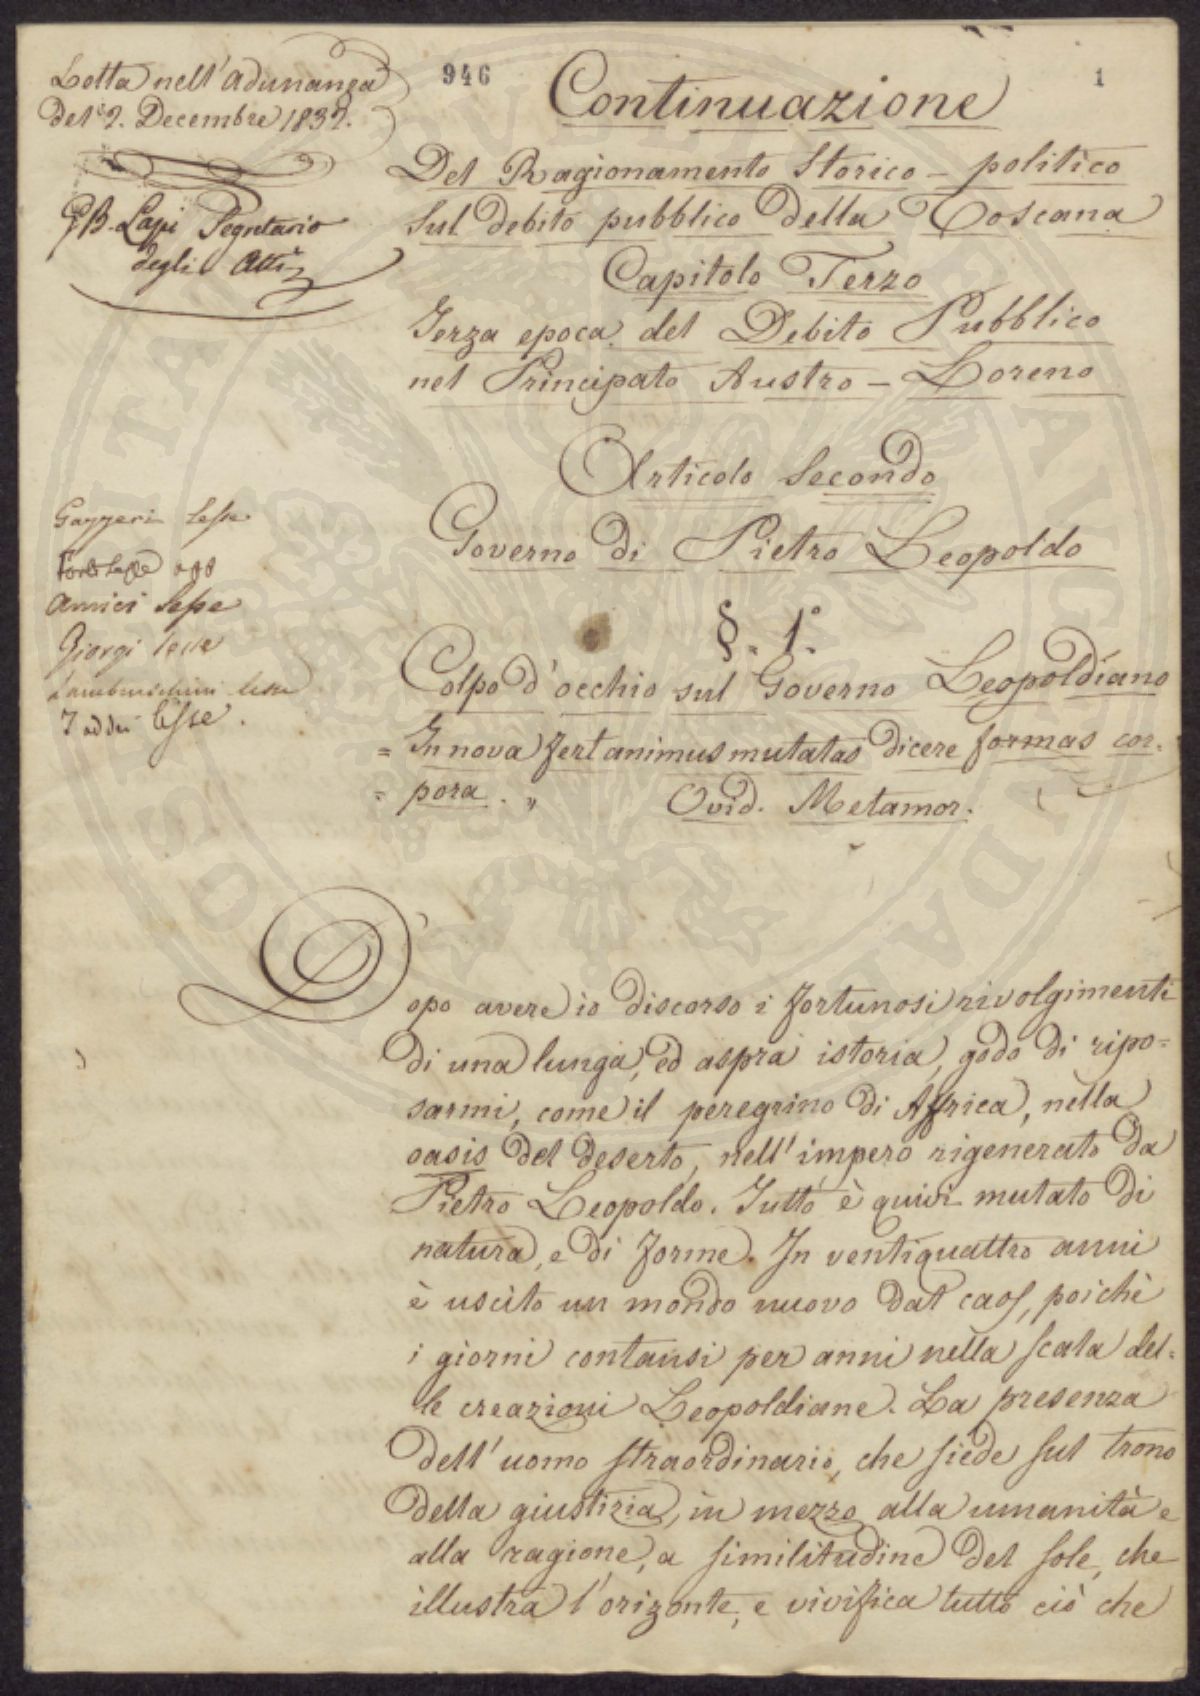 Letta nell'Adunanza
del 2. Decembre 1832.
G.B. Lapi Segretario
degli Atti
946
1
Continuazione
Del Ragionamento Storico-politico
sul debito pubblico della Toscana
Capitolo Terzo
Terza epoca del Debito Pubblico
nel Principato Austro-Loreno
Articolo Secondo
Governo di Pietro Leopoldo
§. 1.°
Colpo d'occhio sul Governo Leopoldiano
= In nova fert animus mutatas dicere formas cor-
= pora. „ Ovid. Metamor.
Gazzeri lesse
Amici lesse
Giorgi lesse
Lambruschini lesse
Taddei lesse.
Dopo avere io discorso i fortunosi rivolgimenti
di una lunga, ed aspra istoria, godo di ripo=
sarmi, come il peregrino di Affrica, nella
oasis del deserto, nell'impero rigenerato da
Pietro Leopoldo. Tutto è quivi mutato di
natura, e di forme. In ventiquattro anni
è uscito un mondo nuovo dal caos, poichè
i giorni contansi per anni nella scala del=
le creazioni Leopoldiane. La presenza
dell'uomo straordinario, che siede sul trono
della giustizia, in mezzo alla umanità e
alla ragione, a similitudine del sole, che
illustra l'orizonte, e vivifica tutto ciò che